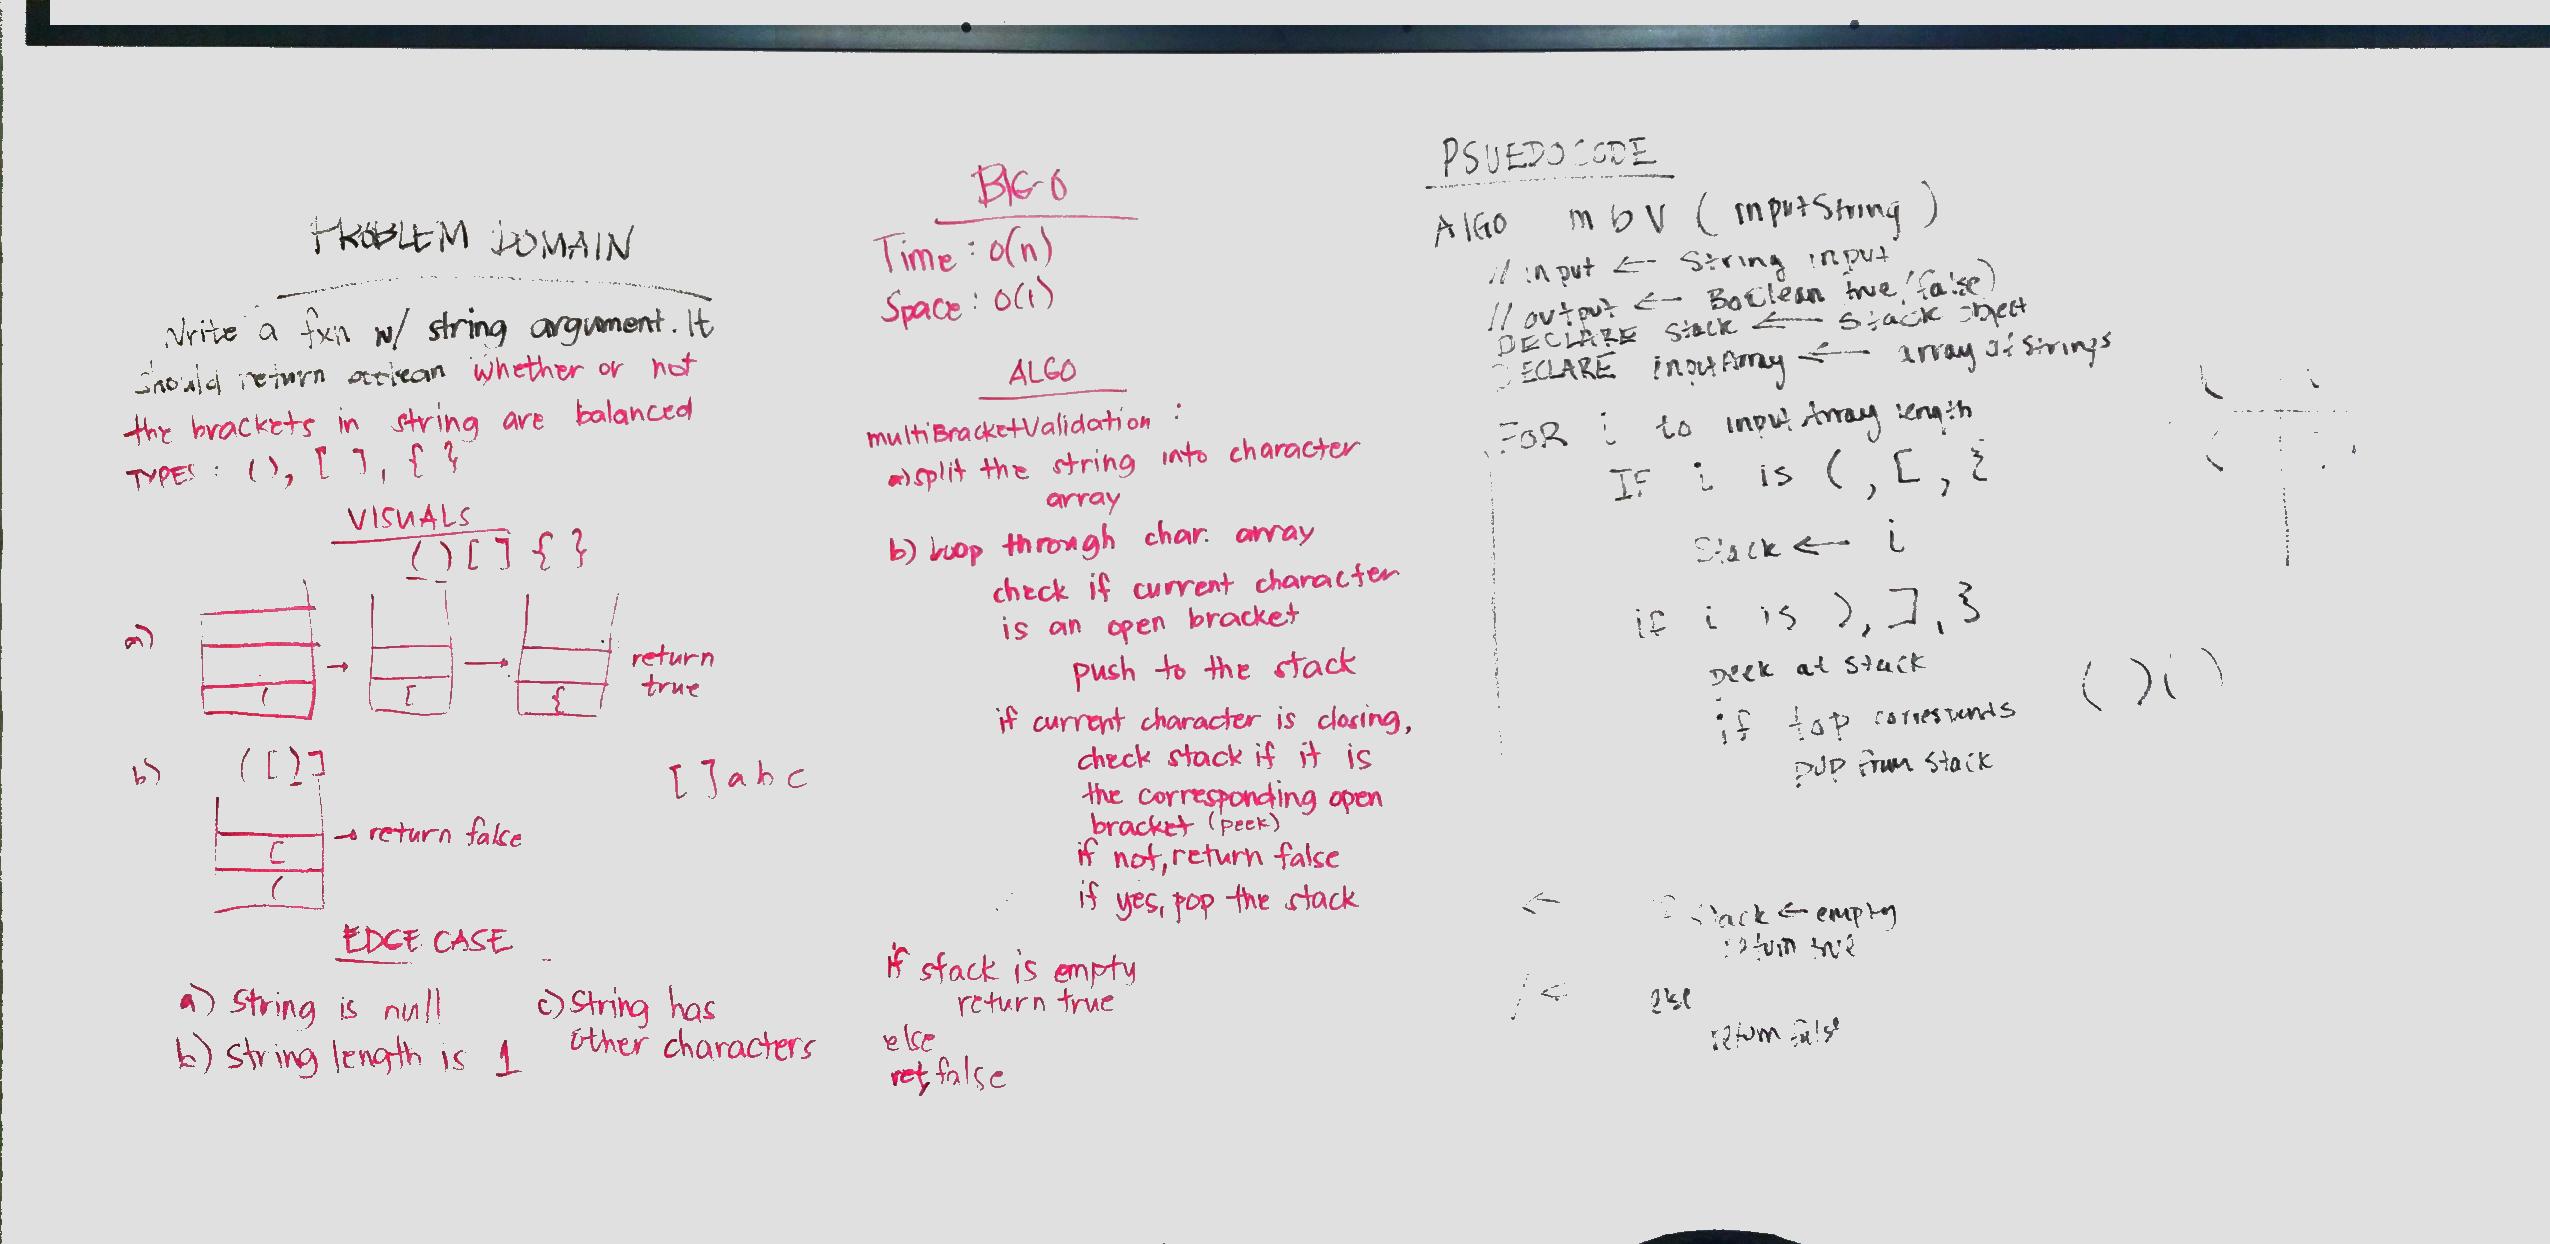 PROBLEM DOMAIN
Write a fxn w/ string argument. It
should return whether or not
the brackets in string are balanced
TYPES : (), [ ], { }
VISUALS
( ) [ ] { }
a)
( → [ → {
return
true
b)
( [ ) ]
[ ] a b c
→ return false
[
(
EDGE CASE
a) string is null
b) string length is 1
c) String has
other characters
BIG-O
Time : O(n)
Space : O(1)
ALGO
multiBracketValidation :
a) split the string into character
array
b) loop through char. array
check if current character
is an open bracket
push to the stack
if current character is closing,
check stack if it is
the corresponding open
bracket (peek)
if not, return false
if yes, pop the stack
if stack is empty
return true
else
ret false
PSUEDOCODE
AlGO mbV ( inputString )
// input ← String input
// output ← Boolean true/false)
DECLARE Stack ← Stack object
DECLARE inputArray ← array of strings
FOR i to inputArray length
IF i is (, [, {
Stack ← i
if i is ), ], }
peek at stack
if top corresponds
pop from stack
( ) ( )
← Stack ← empty
return true
← else
return false